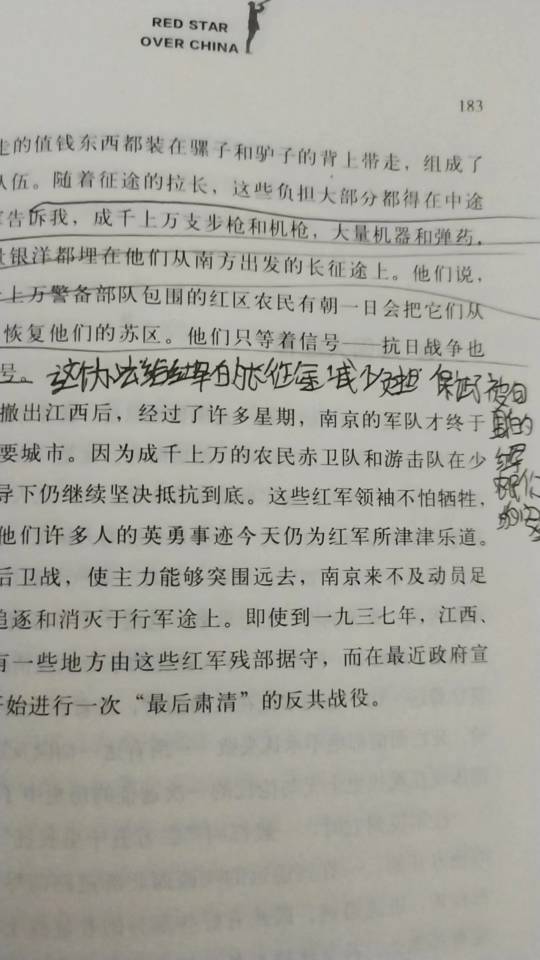 RED STAR
OVER CHINA
183
走的值钱东西都装在骡子和驴子的背上带走，组成了
队伍。随着征途的拉长，这些负担大部分都得在中途
告诉我，成千上万支步枪和机枪，大量机器和弹药，
量银洋都埋在他们从南方出发的长征途上。他们说，
上万警备部队包围的红区农民有朝一日会把它们从
恢复他们的苏区。他们只等着信号——抗日战争也
号。
这个办法给红军的长征军减少负担 保证了
撤出江西后，经过了许多星期，南京的军队才终于
要城市。因为成千上万的农民赤卫队和游击队在少
导下仍继续坚决抵抗到底。这些红军领袖不怕牺牲，
他们许多人的英勇事迹今天仍为红军所津津乐道。
后卫战，使主力能够突围远去，南京来不及动员足
追逐和消灭于行军途上。即使到一九三七年，江西、
有一些地方由这些红军残部据守，而在最近政府宣
开始进行一次“最后肃清”的反共战役。